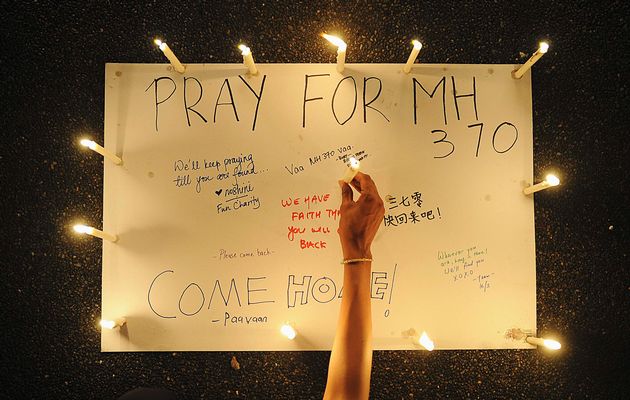 PRAY FOR MH
370
We'll keep praying
till you are found....
♥ roshini
Fun Charity
Vaa MH 370 vaa..
WE HAVE
FAITH
YOU WILL
BACK
三七零
快回来吧!
- Please come back -
Wherever you
are, hang in there!
We'll find you
XOXO
COME HOME!
- Paavaan